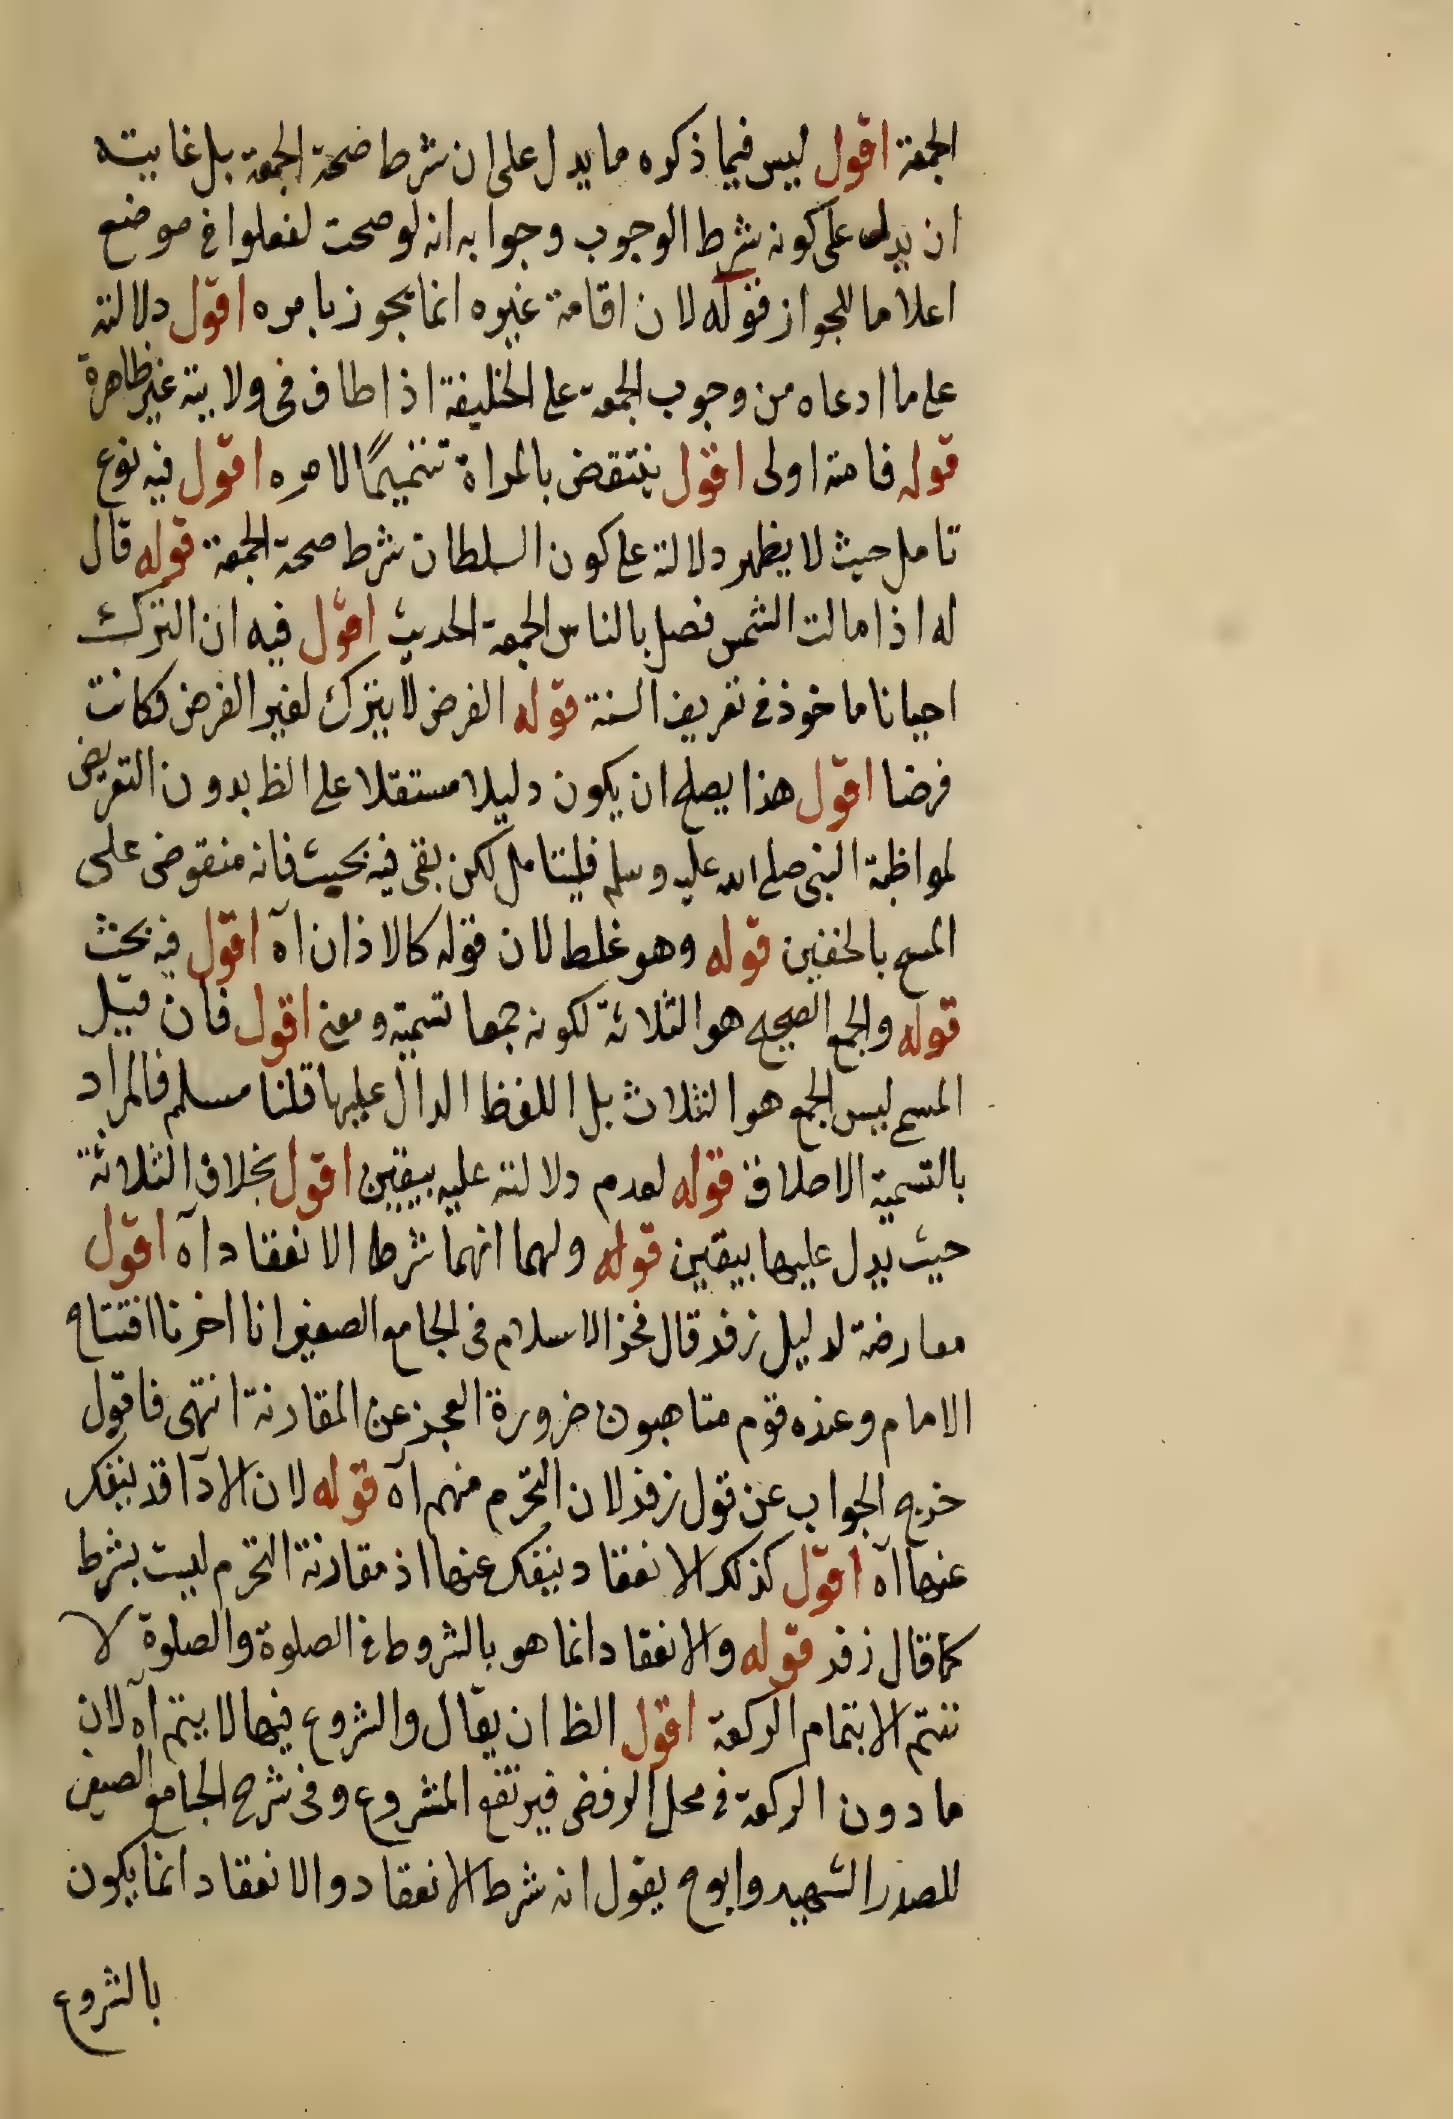 الجمعة اقول ليس فيما ذكره ما يدل على ان شرط صحة الجمعة بل غايته
ان يدل على كونه شرط الوجوب وجوابه انه لو صحت لفعلوا في موضع
اعلاما للجواز قوله لان اقامة غيره انما يجوز بامره اقول دلالته
على ما ادعاه من وجوب الجمعة على الخليفة اذا طاف في ولايته غير ظاهرة
قوله فامته اولى اقول ينتقض بالمراة تتميمًا لامره اقول فيه نوع
تامل حيث لا يظهر دلالة على كون السلطان شرط صحة الجمعة قوله قال
له اذا مالت الشمس فصل بالناس الجمعة الحديث اقول فيه ان الترك
احيانا ماخوذ في تعريف السنة قوله الفرض لا يترك لغير الفرض فكانت
فرضا اقول هذا يصلح ان يكون دليلا مستقلا على الظ بدون التعريض
لمواظبة النبي صلى الله عليه وسلم فليتامل لكن بقى فيه بحيث فانه منقوض على
المسح بالخفين قوله وهو غلط لان قوله كالاذان اه اقول فيه بحث
قوله والجمع الصحيح هو الثلاثة لكونه جمعا تسمية ومعنى اقول فان قيل
المسمى ليس الجمع هو الثلاث بل اللفظ الدال عليها قلنا مسلم فالمراد
بالتسمية الاطلاق قوله لعدم دلالته عليه بيقين اقول بخلاف الثلاثة
حيث يدل عليها بيقين قوله ولهما انهما شرط الانعقاد اه اقول
معارضة لدليل زفر قال فخر الاسلام في الجامع الصغير انا اخرنا افتتاح
الامام وعنده قوم متاهبون ضرورة العجز عن المقارنة انتهى فاقول
خرج الجواب عن قول زفر لان التحرم منهم اه قوله لان الادا قد ينفك
عنها اه اقول كذلك الانعقاد ينفك عنها اذ مقارنة التحرم ليست بشرط
كما قال زفر قوله والانعقاد انما هو بالشروط في الصلوة والصلوة لا
تتم الا بتمام الركعة اقول الظ ان يقال والشروع فيها لا يتم اه لان
ما دون الركعة في محل الرفض فيرتفع المشروع وفي شرح الجامع الصغير
للصدر الشهيد وابو ح يقول انه شرط الانعقاد والانعقاد انما يكون
بالشروع